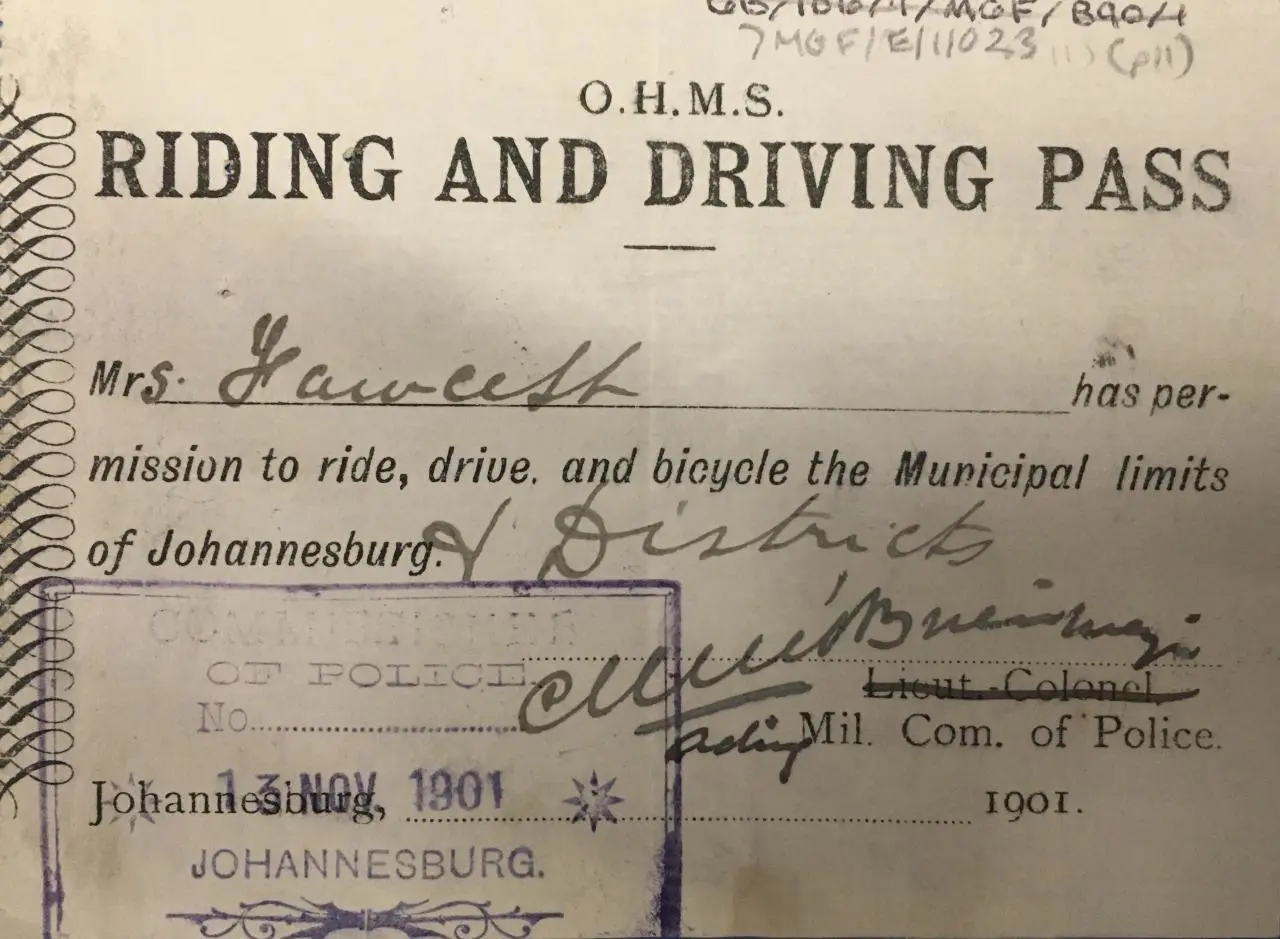 GB/106/7/MGF/B90/1
7MGF/E/11023 (p11)
O.H.M.S.
RIDING AND DRIVING PASS
Mrs. Fawcett has per-
mission to ride, drive. and bicycle the Municipal limits
of Johannesburg. & Districts
COMMISSIONER
OF POLICE.
No.
Lieut.-Colonel.
Acting Mil. Com. of Police.
Johannesburg, 1901.
13 NOV. 1901
JOHANNESBURG.